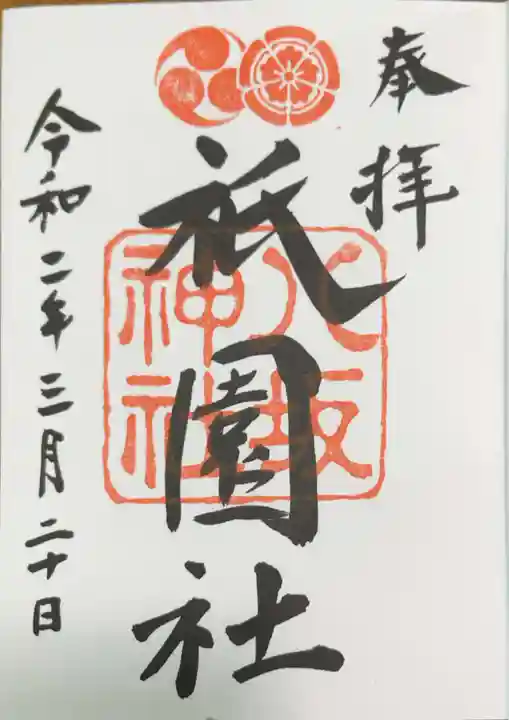 奉拝
八坂
神社
祇園社
令和二年三月二十日